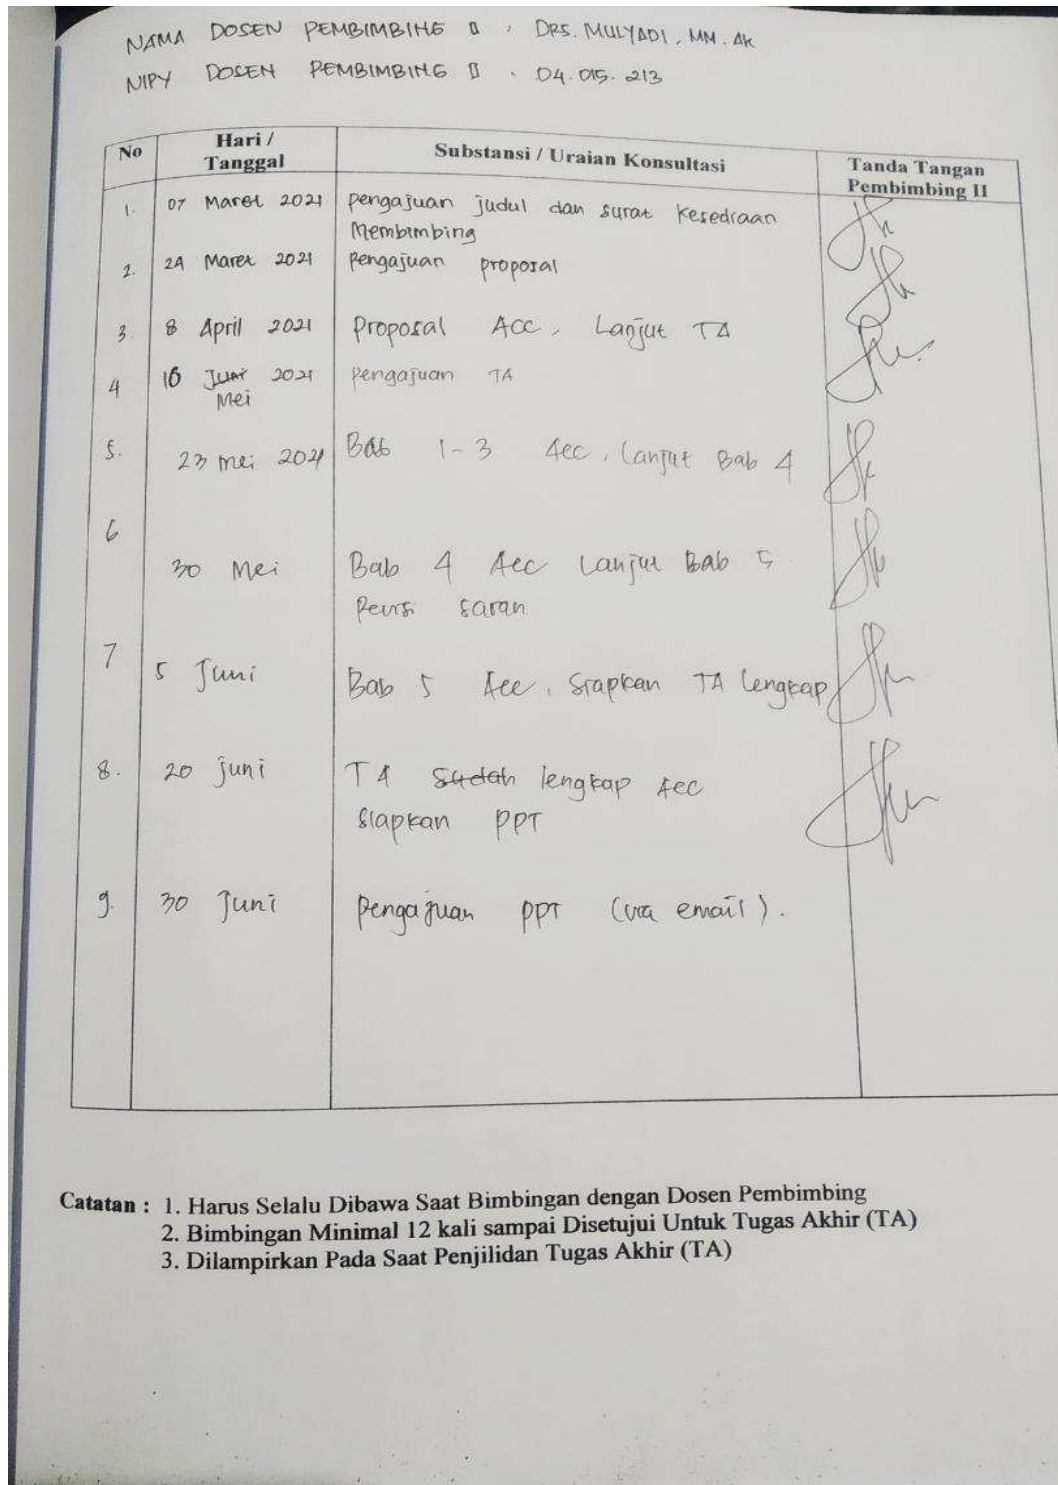 NAMA DOSEN PEMBIMBING II : DRS. MULYADI, MM. AK
NIPY DOSEN PEMBIMBING II : 04.015.213
No Hari / Tanggal Substansi / Uraian Konsultasi Tanda Tangan Pembimbing II
1. 07 Maret 2021 pengajuan judul dan surat kesediaan
Membimbing
2. 24 Maret 2021 Pengajuan proposal
3. 8 April 2021 Proposal ACC, Lanjut TA
4 16 Juni 2021 Pengajuan TA
Mei
5. 23 mei 2021 Bab 1-3 Acc, Lanjut Bab 4
6 30 Mei Bab 4 Acc Lanjut Bab 5
Revisi saran
7 5 Juni Bab 5 Acc, Siapkan TA Lengkap
8. 20 juni TA sudah lengkap Acc
siapkan PPT
9. 30 Juni pengajuan PPT (via email).
Catatan : 1. Harus Selalu Dibawa Saat Bimbingan dengan Dosen Pembimbing
2. Bimbingan Minimal 12 kali sampai Disetujui Untuk Tugas Akhir (TA)
3. Dilampirkan Pada Saat Penjilidan Tugas Akhir (TA)